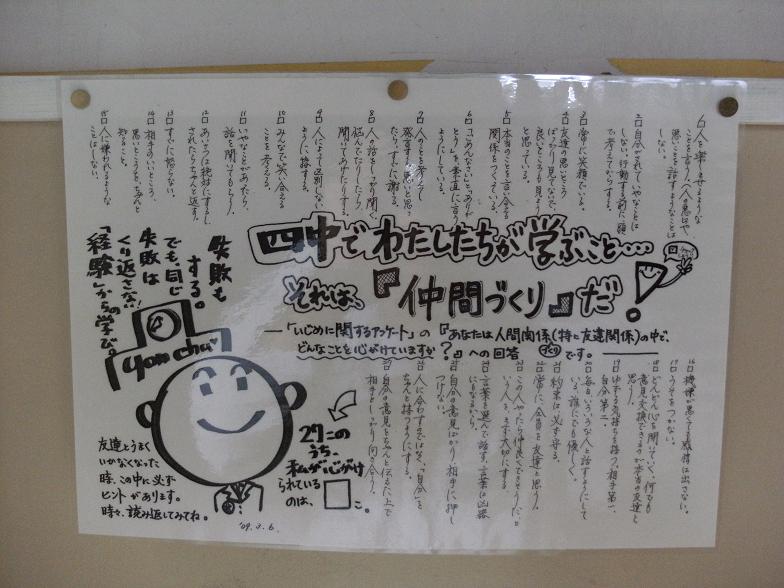 1□人を楽しませるような
ことを言う。(人の悪口や、
悪いことを話すようなことは
しない。)
2□自分がされていやなことは
しない。行動する前に、頭
で考えてからする。
3□常に笑顔でいる。
4□友達の悪いところ
ばっかり見てないで、
良いところも見よう
と思っている。
5□本当のことを言い合える
関係をつくっている。
6□「ごめんなさい」と「ありが
とう」を、素直に言う
ようにしている。
7□人のことを考えて
発言する。悪いと思っ
たら、すぐに謝る。
8□人の話をしっかり聞く。
悩んでたりしたら、
聞いてあげたりする。
9□人によって区別しない
ように接する。
10□みんなで笑い合える
ことを考える。
11□いやなことがあったら、
話を聞いてもらう。
12□あいさつは絶対にするし、
されたらちゃんと返す。
13□すぐに怒らない。
14□相手のいいところ、
悪いところをちゃんと
知ること。
15□人に嫌われるような
ことはしない。
四中でわたしたちが学ぶこと・・・・
それは、『仲間づくり』だ!
―「いじめに関するアンケート」の『あなたは人間関係(特に友達関係)の中で、
どんなことを心がけていますか?』への回答です。―
16□機嫌が悪くても態度は出さない。
17□うそをつかない。
18□どんどん心を開いていく。何でも
意見交換できるのが本当の友達と
思う。
19□ゆずる気持ちを持つ。相手第一、
自分第二。
20□毎日、いろいろな人と話すようにして
いる。誰にでも優しく。
21□約束は必ず守る。
22□常に、全員を友達と思う。
□この人やったら仲良くできそうだ、と
いう人を、まず大切にする
□言葉を選んで話す。言葉は凶器
にもなるから。
□自分の意見ばかり相手に、押し
つけない。
□人に合わすのではなく、「自分」を
ちゃんと持つようにする。
□自分の意見をちゃんと伝えた上で
相手としっかり向き合う。
失敗も
する。
でも、同じ
失敗は
くり返さない!
「経験」からの学び。
yonchu
27このうち、
私が心がけ
られている
のは、□こ。
友達とうまく
いかなくなった
時、この中に必ず
ヒントがあります。
時々、読み返してみてね。
'09.3.6.